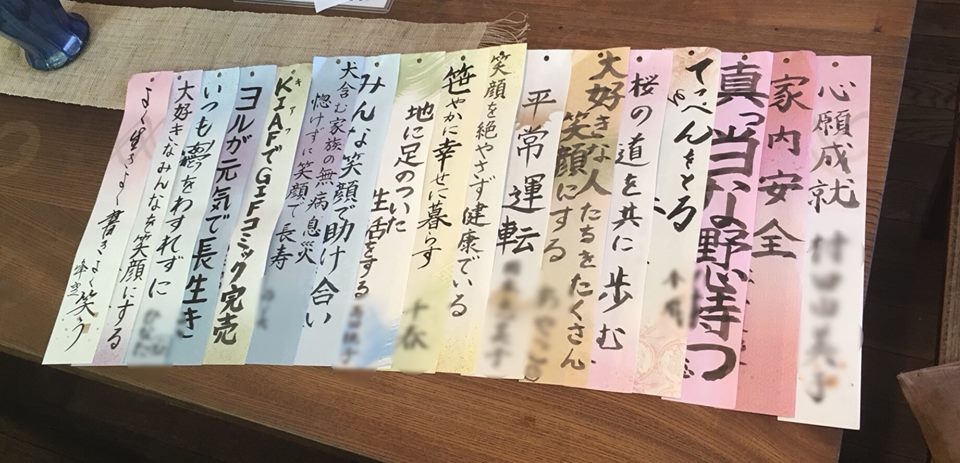 心願成就
家内安全
真っ当な野心持つ
てっぺんをとる
桜の道を共に歩む
大好きな人たちをたくさん
笑顔にする
平常運転
笑顔を絶やさず健康でいる
笹やかに幸せに暮らす
地に足のついた
生活をする
みんな笑顔で助け合い
犬含む家族の無病息災
惚けずに笑顔で長寿
KIAFでGIFコミック完売
キアフ
ヨルが元気で長生き
いつも夢をわすれずに
大好きなみんなを笑顔にする
よく生きよく書きよく笑う